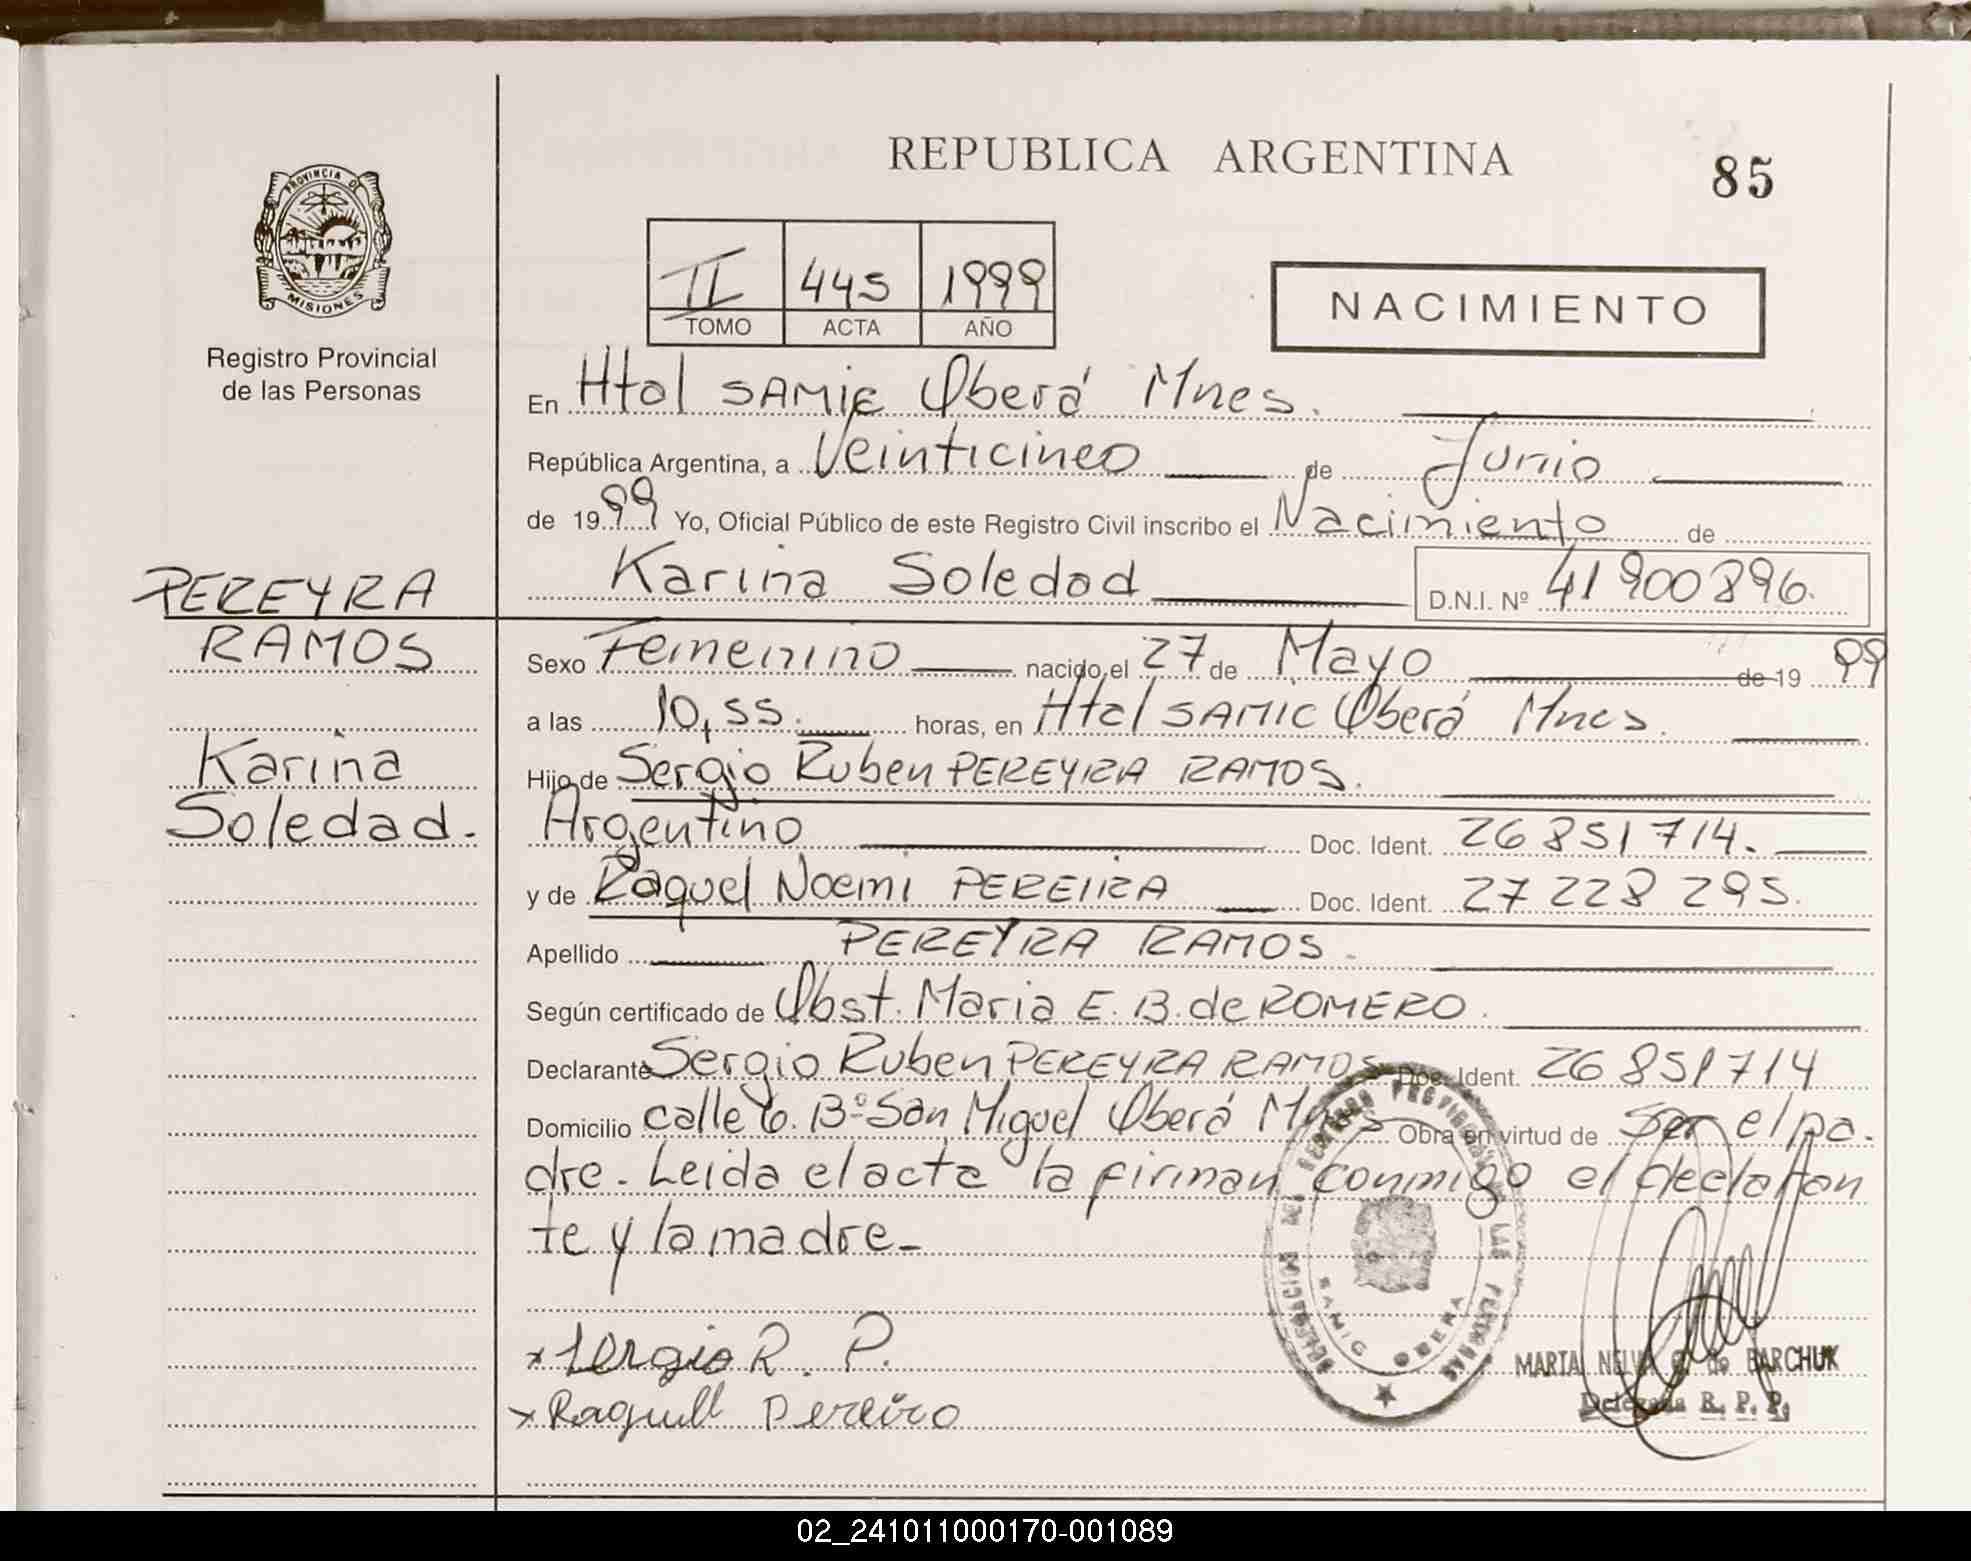 REPUBLICA ARGENTINA
85
PROVINCIA DE
MISIONES
Registro Provincial
de las Personas
II 445 1999
TOMO ACTA AÑO
NACIMIENTO
En Htal SAMIC Oberá Mnes.
República Argentina, a Veinticinco de Junio
de 1999 Yo, Oficial Público de este Registro Civil inscribo el Nacimiento de
Karina Soledad D.N.I. Nº 41900896.
PEREYRA
RAMOS
Karina
Soledad.
Sexo Femenino nacido el 27 de Mayo de 1999
a las 10,55. horas, en Htal SAMIC Oberá Mnes.
Hijo de Sergio Ruben PEREYRA RAMOS.
Argentino Doc. Ident. 26851714.
y de Raquel Noemi PEREIRA Doc. Ident. 27228295.
Apellido PEREYRA RAMOS.
Según certificado de Obst. Maria E. B. de ROMERO.
Declarante Sergio Ruben PEREYRA RAMOS Doc. Ident. 26851714
Domicilio calle 6. Bº San Miguel Oberá Mnes Obra en virtud de ser el pa-
dre. Leida el acta la firman conmigo el declaran
te y la madre.-
x Sergio R. P.
x Raquell Pereira
DELEGACION DEL REGISTRO PROVINCIAL DE LAS PERSONAS
SAMIC OBERA
MARTA NELVA de BARCHUK
Delegada R. P. P.
02_241011000170-001089